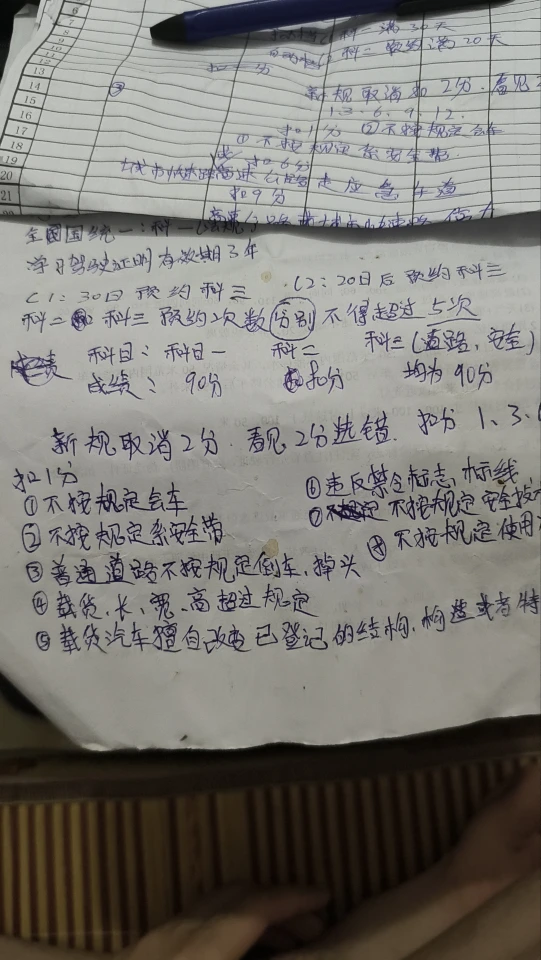 6
7
8
9
10
11
12
13
14
15
16
17
18
19
20
21
科一满30天
科一预约满20天
扣一分
新规取消扣2分.看见2
1.3.6.9.12.
扣1分 ②不按规定会车
①不按规定系安全带.
扣6分
城市快速路 高速公路走应急车道
扣9分
全国国统一:科一
学习驾驶证明有效期3年
C1:30日预约科三 C2:20日后预约科三
科二 科三预约次数分别不得超过5次
科目:科目一 科二 科三(道路,安全)
成绩: 90分 80分 均为90分
新规取消2分.看见2分选错. 扣分 1、3、
扣1分
①不按规定会车
②不按规定系安全带
③普通道路不按规定倒车、掉头
④载货、长、宽、高超过规定
⑤载货汽车擅自改变已登记的结构、构造或者特
⑥违反禁令标志,标线
⑦不按规定安全技
⑧不按规定使用